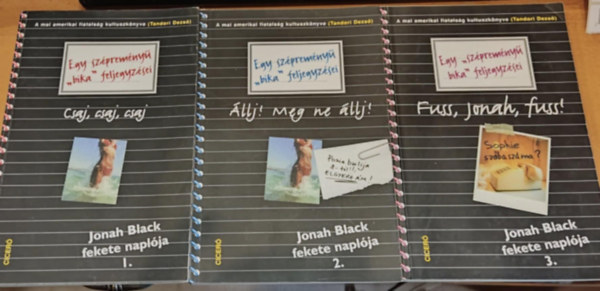 A mai amerikai fiatalság kultuszkönyve (Tandori Dezső)
Egy szépreményű
„bika” feljegyzései
Csaj, csaj, csaj
Jonah Black
fekete naplója
1.
CICERÓ
A mai amerikai fiatalság kultuszkönyve (Tandori Dezső)
Egy szépreményű
„bika” feljegyzései
Állj! Meg ne állj!
Jonah Black
fekete naplója
2.
CICERÓ
A mai amerikai fiatalság kultuszkönyve (Tandori Dezső)
Egy „szépreményű
bika” feljegyzései
Fuss, Jonah, fuss!
Sophie
szobaszáma?
Jonah Black
fekete naplója
3.
CICERÓ